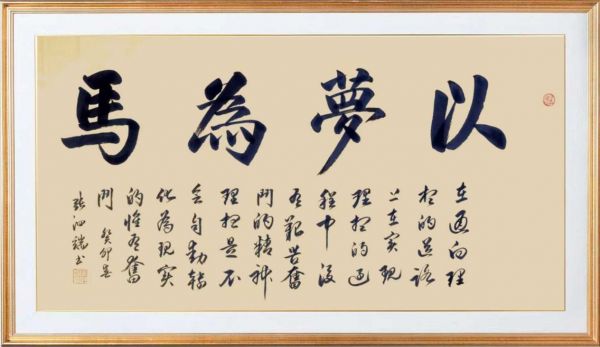 以夢為馬
在通向理
想的道路
上在實現
理想的過
程中没
有艱苦奮
鬥的精神
理想是不
會自動轉
化為現實
的惟有奮
鬥 癸卯
張泗瑞书